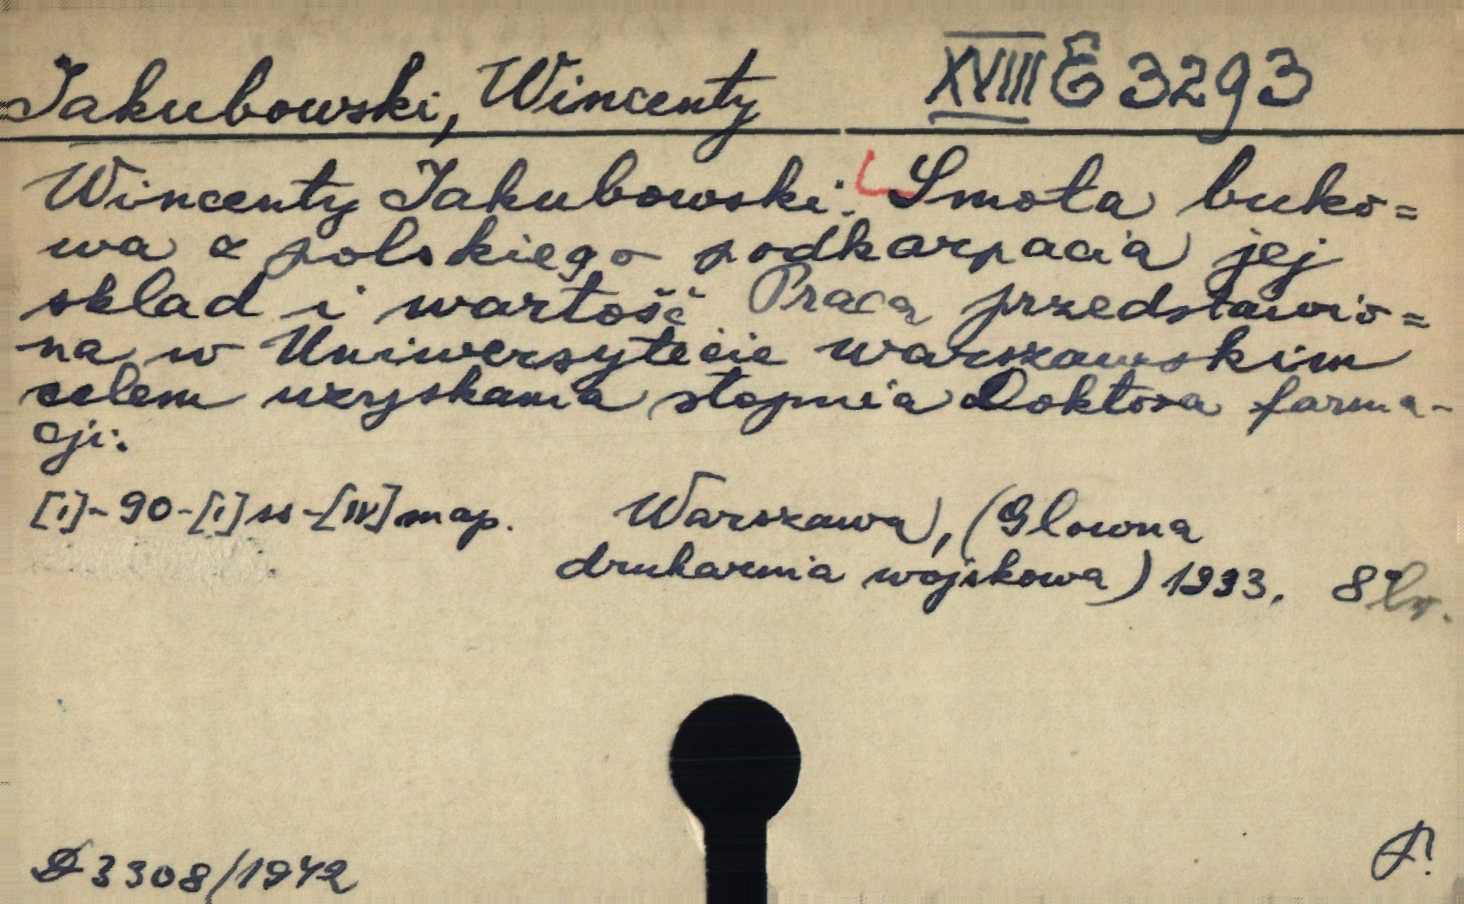 Jakubowski, Wincenty XVIII E 3293
Wincenty Jakubowski: Smoła buko=
wa z polskiego podkarpacia jej
skład i wartość Praca przedstawio=
na w Uniwersytecie warszawskim
celem uzyskania stopnia Doktora farma-
cji.
[1]-90-[1] ss-[IV] map. Warszawa, (Glowna
drukarnia wojskowa) 1933. 8°
D 3308/1942